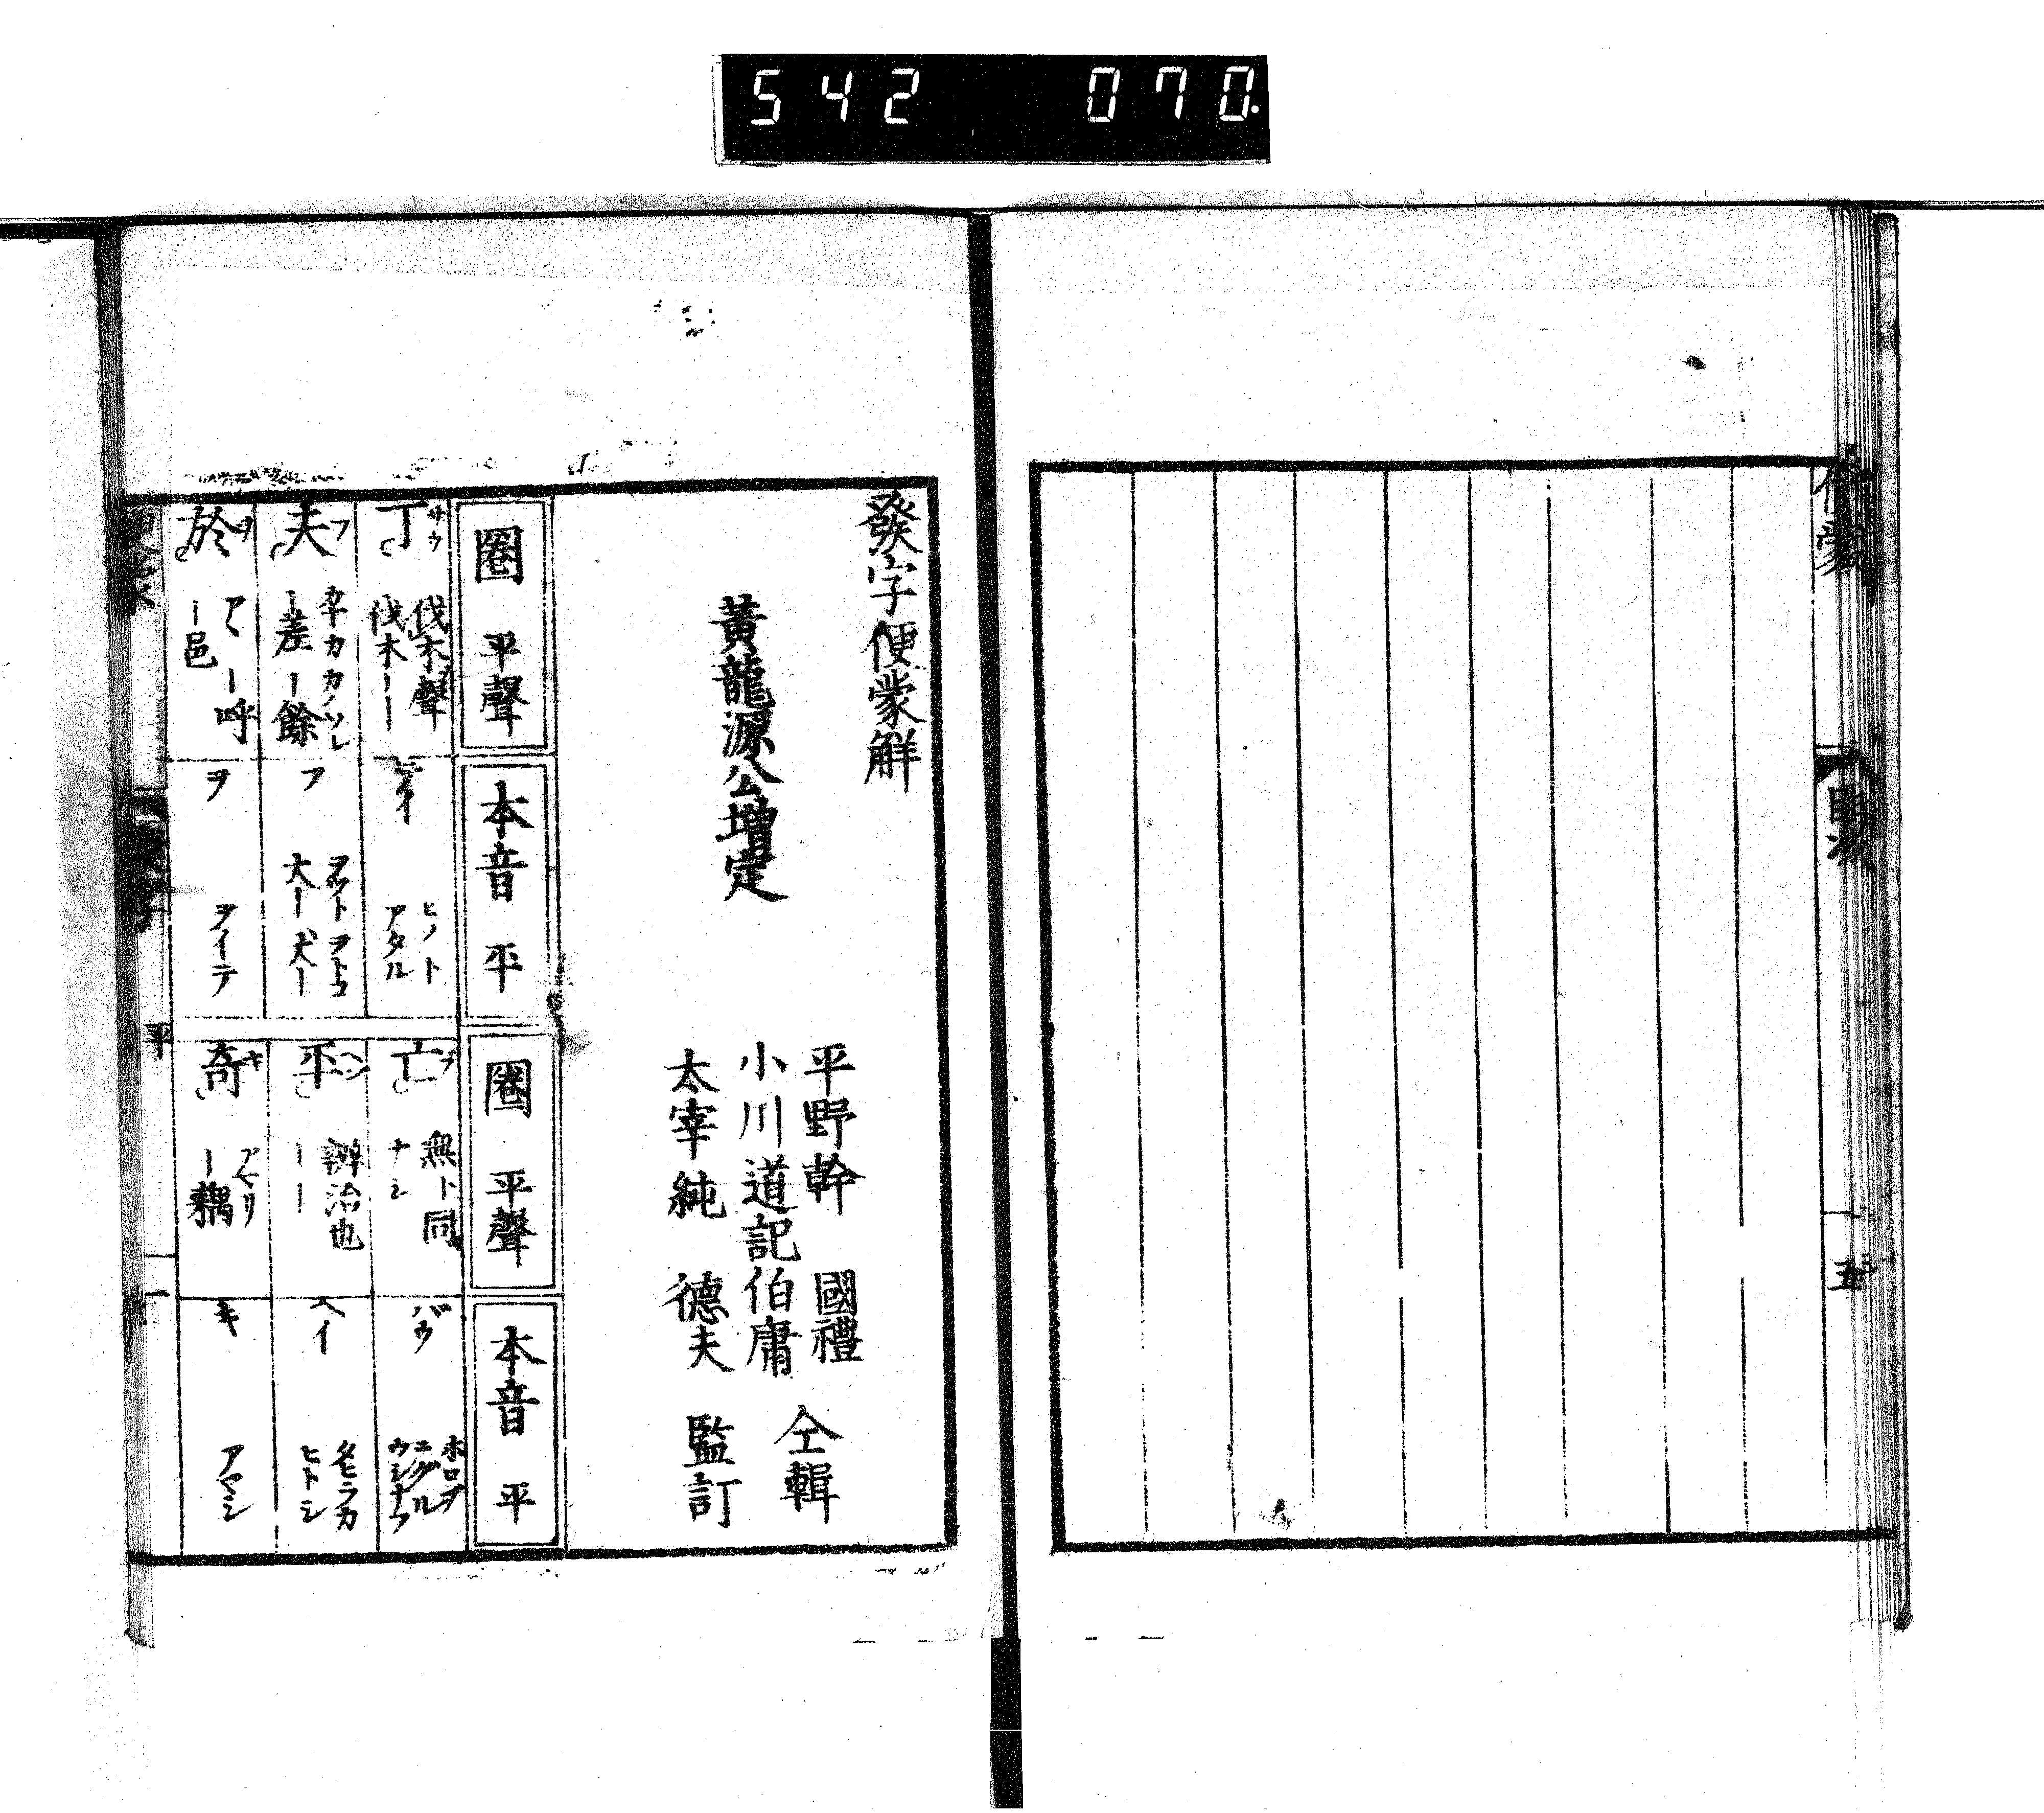 542 070.
五
發字便蒙解
黃龍源公增定
平野幹 國禮
小川道記伯庸
仝輯
太宰純 德夫 監訂
圈 平聲
本音 平
圈 平聲
本音 平
丁 サウ
伐木聲
伐木ーー
テイ
ヒノト
アタル
亡 ブ
無ト同
ナシ
バウ
ホロブ
ニグル
ウシナフ
夫 フ
ー差ー餘
フ
ヲツト ヲトコ
大ー 犬ー
平 ヘン
辨治也
ーー
ヘイ
タヒラカ
ヒトシ
於 ヲ
アヽー呼
ー邑
ヲ
ヲイテ
奇 キ
アマリ
ー耦
キ
アヤシ
平
一